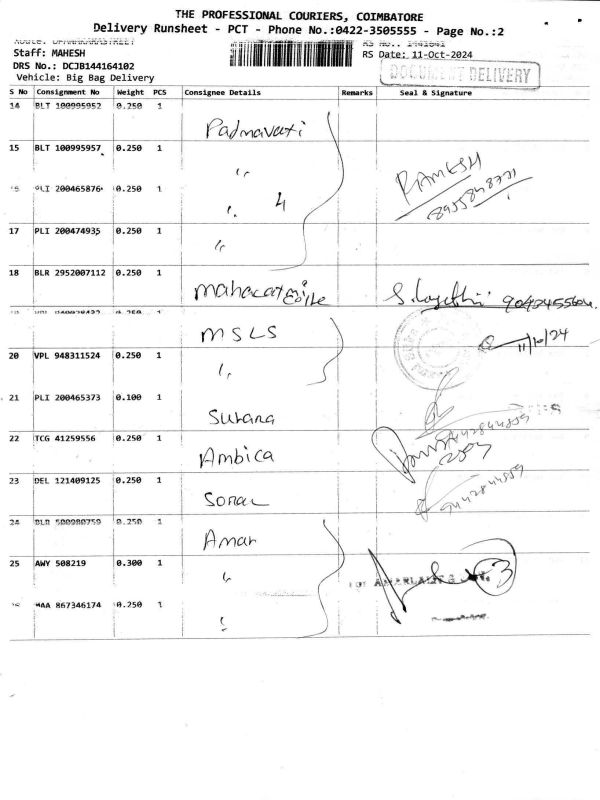 THE PROFESSIONAL COURIERS, COIMBATORE
Delivery Runsheet - PCT - Phone No.:0422-3505555 - Page No.:2
Staff: MAHESH
RS Date: 11-Oct-2024
DRS No.: DCJB144164102
DOCUMENT DELIVERY
Vehicle: Big Bag Delivery
S No Consignment No Weight PCS Consignee Details Remarks Seal & Signature
14 BLT 100995952 0.250 1
Padmavati
15 BLT 100995957 0.250 1
"
RAMESH
200465876 0.250 1
" 4
17 PLI 200474935 0.250 1
"
18 BLR 2952007112 0.250 1
0.250 1
MSLS
11/10/24
20 VPL 948311524 0.250 1
"
21 PLI 200465373 0.100 1
Surana
22 TCG 41259556 0.250 1
Ambica
23 DEL 121409125 0.250 1
Sonal
24 BLR 500980759 0.250 1
Amar
25 AWY 508219 0.300 1
"
3
MAA 867346174 0.250 1
"